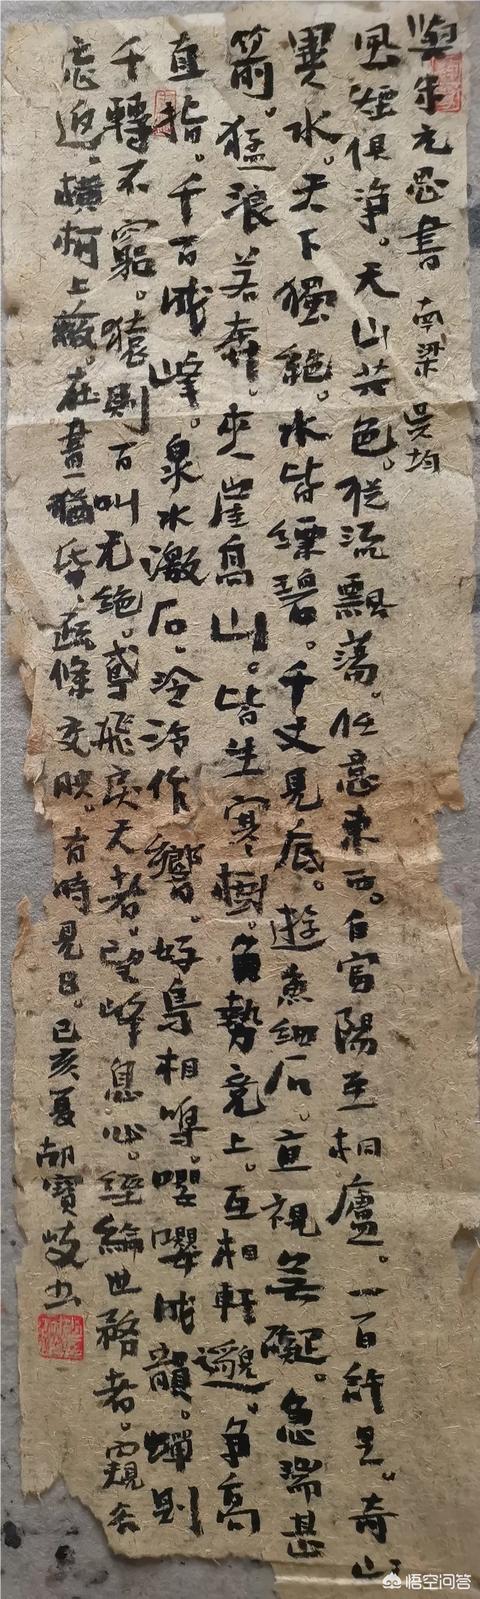 與朱元思書 南梁 吴均
风煙俱净。天山共色。從流飄蕩。任意東西。自富陽至桐廬。一百許里。奇山
異水。天下獨絶。水皆缥碧。千丈見底。遊魚細石。直視無礙。急湍甚
箭。猛浪若奔。夾崖高山。皆生寒樹。負勢竞上。互相軒邈。争高
直指。千百成峰。泉水激石。泠泠作響。好鳥相鳴。嚶嚶成韻。蟬則
千轉不窮。猿則百叫无绝。鸢飛戾天者。望峰息心。經綸世務者。窥谷
忘返。横柯上蔽。在晝猶昏。疏條交映。有時見日。己亥夏 胡寶岐书
悟空问答